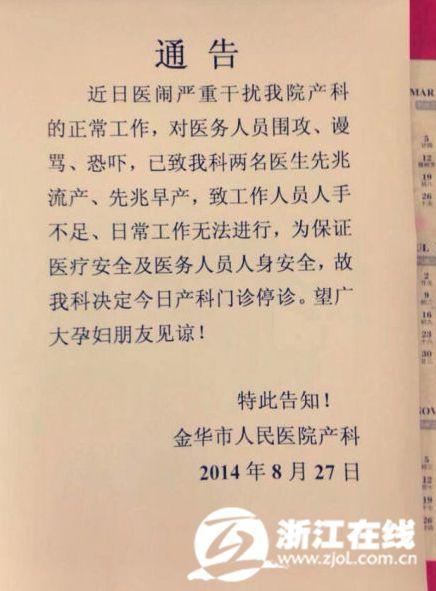 通 告
近日医闹严重干扰我院产科
的正常工作，对医务人员围攻、谩
骂、恐吓，已致我科两名医生先兆
流产、先兆早产，致工作人员人手
不足、日常工作无法进行，为保证
医疗安全及医务人员人身安全，故
我科决定今日产科门诊停诊。望广
大孕妇朋友见谅！
特此告知！
金华市人民医院产科
2014 年 8 月 27 日
MAR
5
12
19
26
UL
2
9
16
23
30
NOV
5
12
19
26
浙江在线
www.zjol.com.cn